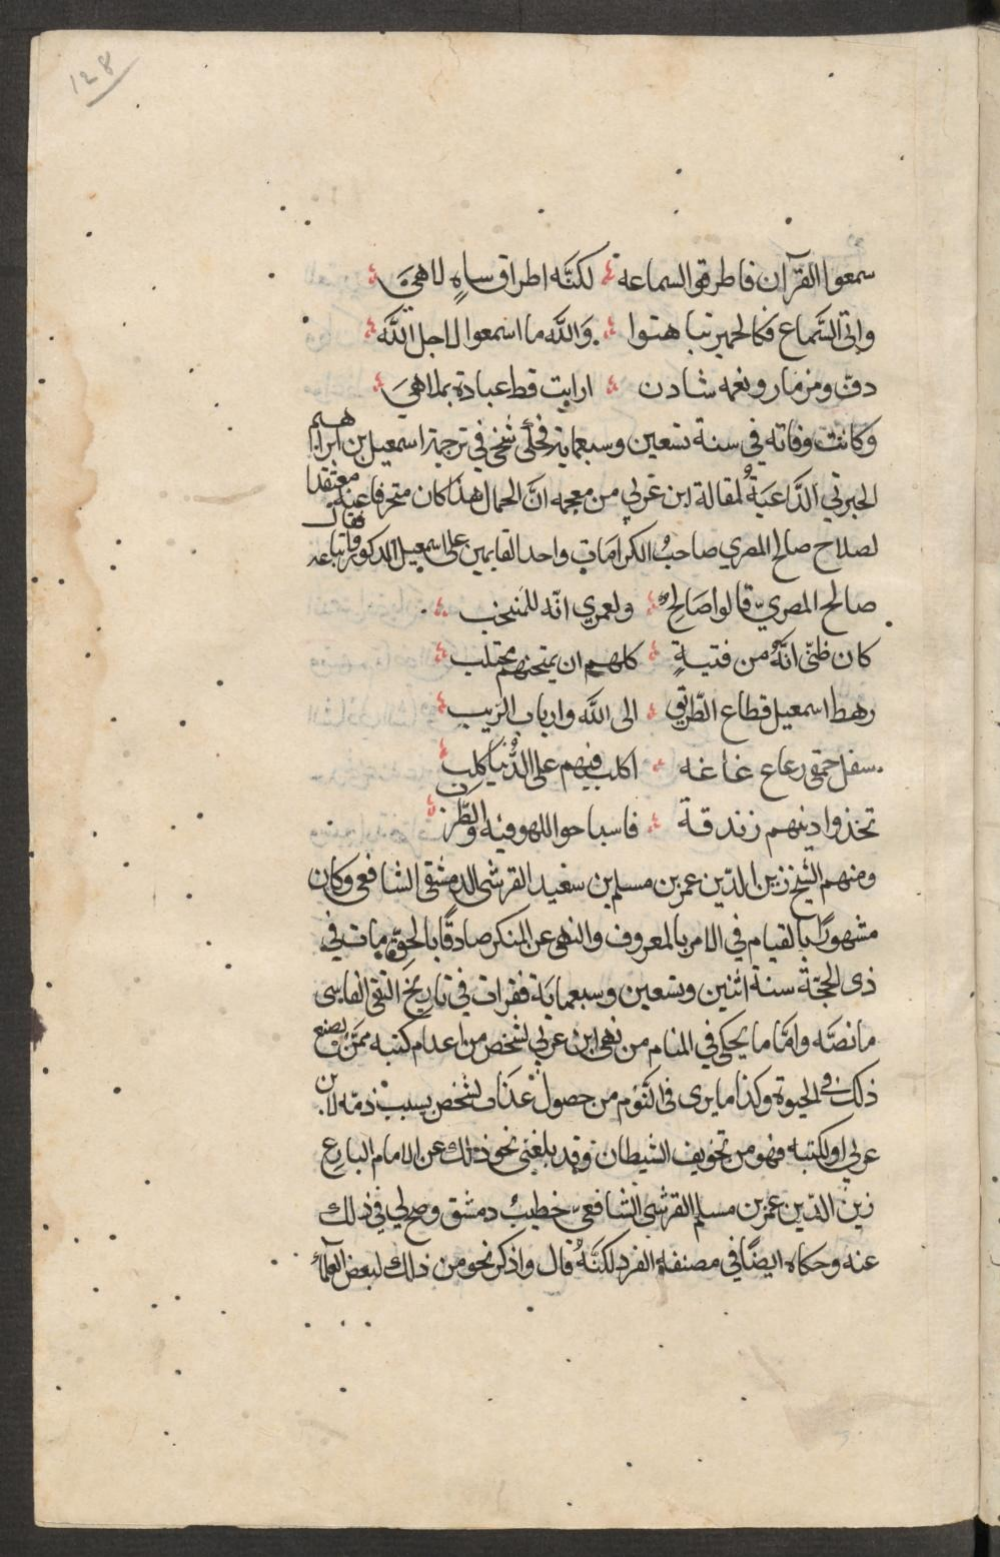 ١٤٨
سمعوا القرآن فاطرقوا لسماعه لكنه اطراق ساهٍ لاهي
واتى السماع فكالحمير تباهتوا والله ما اسمعوا لاجل الله
دف ومزمار ونغمه شادن ارايت قط عبادة بملاهي
وكانت وفاته في سنة تسعين وسبعماية فحكى شيخي في ترجمة اسمعيل بن ابراهيم
الجبرتي الداعية لمقالة ابن عربي من معجمه ان الجمال هذا كان منحرفا عنه معتقدا
لصلاح صالح المصري صاحب الكرامات واحد القايمين على اسمعيل المذكور واتباعه فقال
صالح المصري قالوا صالح ولعمري انه للمنتخب
كان ظني انه من فتية كلهم ان يمتحنهم مختلب
رهط اسمعيل قطاع الطريق الى الله وارباب الريب
سفل حمقى رعاع غاغه اكلب فيهم على الدنيا كلب
تخذوا دينهم زندقة فاسباحوا اللهو فيه والطرب
ومنهم الشيخ زين الدين عمر بن مسلم بن سعيد القرشي الدمشقي الشافعي وكان
مشهورًا بالقيام في الامر بالمعروف والنهي عن المنكر صادقًا بالحق مات في
ذى الحجة سنة اثنين وتسعين وسبعماية فقرات في تاريخ التقي الفاسي
ما نصه واما ما يحكى في المنام من نهى ابن عربي لشخص من اعدام كتبه ممن يصنع
ذلك في الحيوة وكذا ما يرى في النوم من حصول عذاب لشخص بسبب ذمه لابن
عربي او لكتبه فهو من تخويف الشيطان وقد بلغني نحو ذلك عن الامام البارع
زين الدين عمر بن مسلم القرشي الشافعي خطيب دمشق وصح لي في ذلك
عنه وحكاه ايضًا في مصنفه الفرد لكنه قال واذكر نحو من ذلك لبعض العلماء